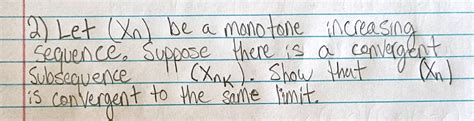 2) Let (Xn) be a monotone increasing
sequence. Suppose there is a convergent
subsequence (XnK). Show that (Xn)
is convergent to the same limit.